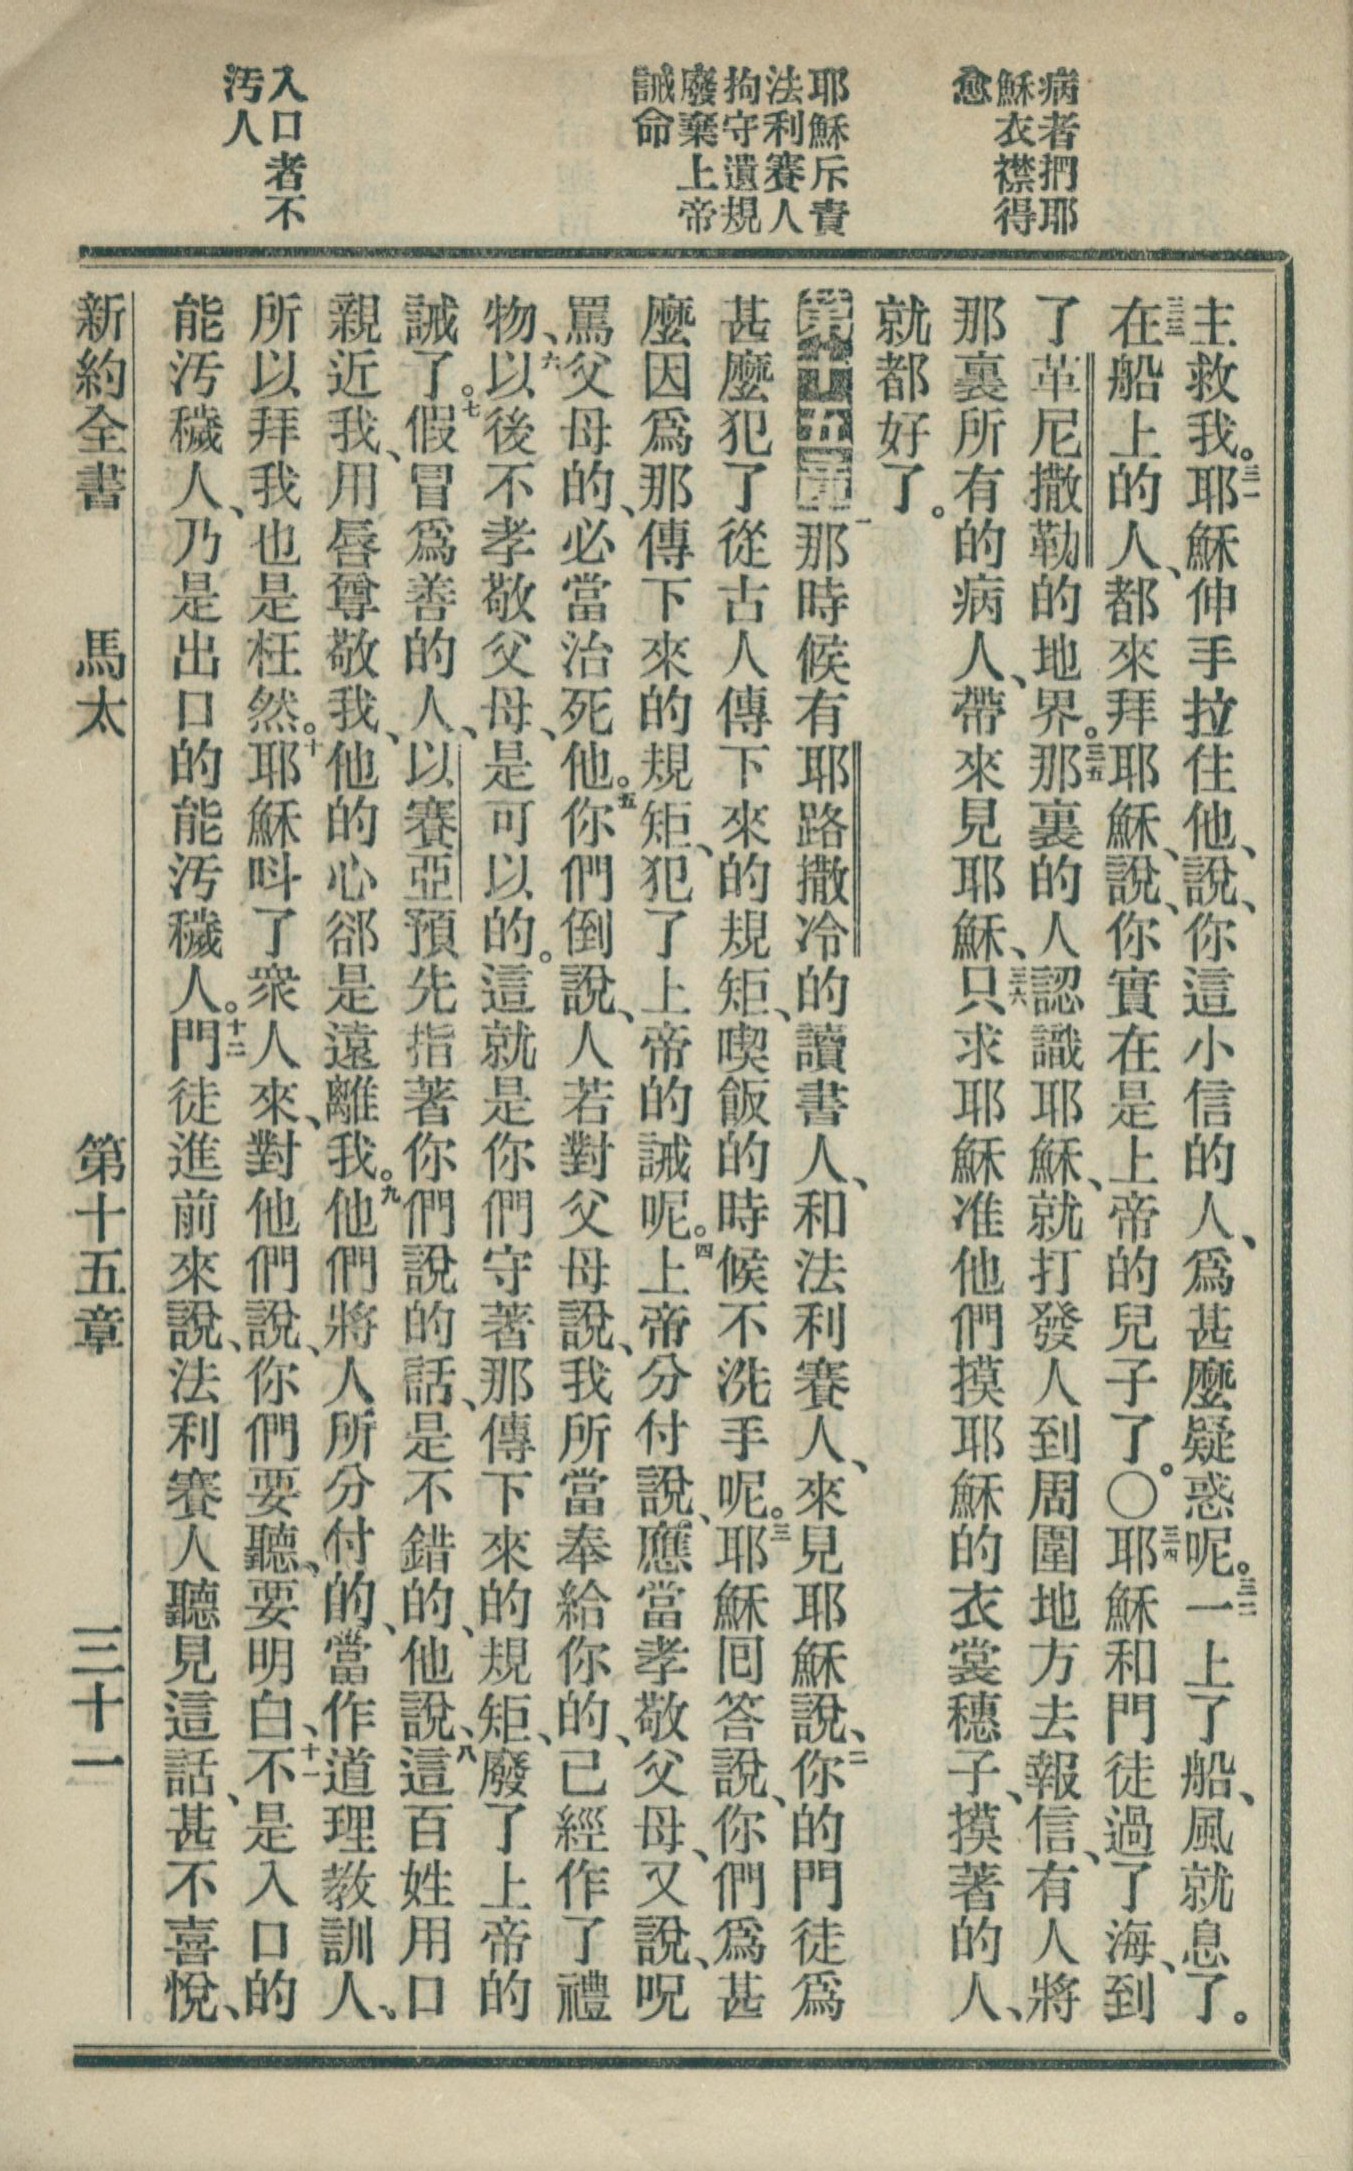 病者捫耶
穌衣襟得
愈
耶穌斥責
法利賽人
拘守遺規
廢棄上帝
誡命
入口者不
汚人
主救我。三一耶穌伸手拉住他、說、你這小信的人、爲甚麼疑惑呢。三二一上了船、風就息了。
三三在船上的人、都來拜耶穌、說、你實在是上帝的兒子了。〇三四耶穌和門徒過了海、到
了革尼撒勒的地界。三五那裏的人認識耶穌、就打發人到周圍地方去報信、有人將
那裏所有的病人、帶來見耶穌、三六只求耶穌准他們摸耶穌的衣裳穗子、摸著的人、
就都好了。
第十五章一那時候有耶路撒冷的讀書人、和法利賽人、來見耶穌說、二你的門徒爲
甚麼犯了從古人傳下來的規矩、喫飯的時候不洗手呢。三耶穌回答說、你們爲甚
麼因爲那傳下來的規矩、犯了上帝的誡呢。四上帝分付說、應當孝敬父母、又說、呪
罵父母的、必當治死他。五你們倒說、人若對父母說、我所當奉給你的、已經作了禮
物、六以後不孝敬父母、是可以的。這就是你們守著那傳下來的規矩、廢了上帝的
誡了。七假冒爲善的人、以賽亞預先指著你們說的話、是不錯的、他說、八這百姓用口
親近我、用唇尊敬我、他的心郤是遠離我。九他們將人所分付的、當作道理教訓人、
所以拜我也是枉然。十耶穌呌了衆人來、對他們說、你們要聽、要明白、十一不是入口的
能汚穢人、乃是出口的能汚穢人。十二門徒進前來說、法利賽人聽見這話、甚不喜悅、
新約全書 馬太 第十五章 三十一